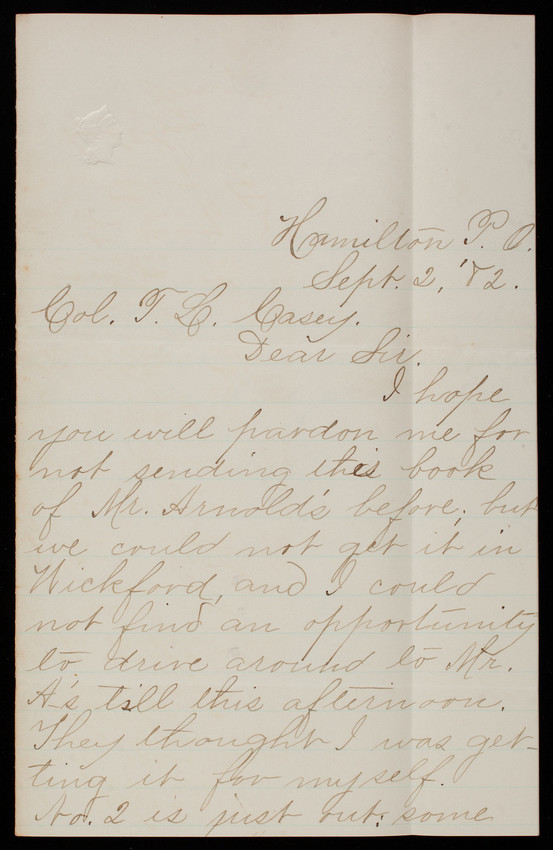 Hamilton P. O.
Sept. 2, '82.
Col. T. L. Casey.
Dear Sir.
I hope
you will pardon me for
not sending this book
of Mr. Arnold's before; but
we could not get it in
Wickford, and I could
not find an opportunity
to drive around to Mr.
A's till this afternoon.
They thought I was get-
ting it for myself.
No. 2 is just out: some